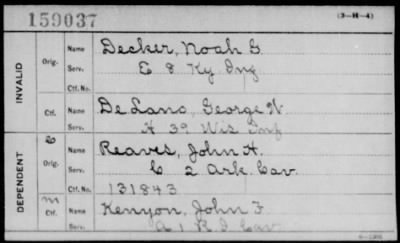 159037 (3-H-4)
INVALID
Orig. Name Decker, Noah G.
Serv. E 8 Ky Inf
Ctf. No.
Ctf. Name De Lano, George W.
Serv. H 39 Wis Inf
DEPENDENT
Orig. Name Reaves, John H.
Serv. C 2 Ark. Cav.
Ctf. No. 131843
m
Ctf. Name Kenyon, John F
Serv. A 1 R I Cav